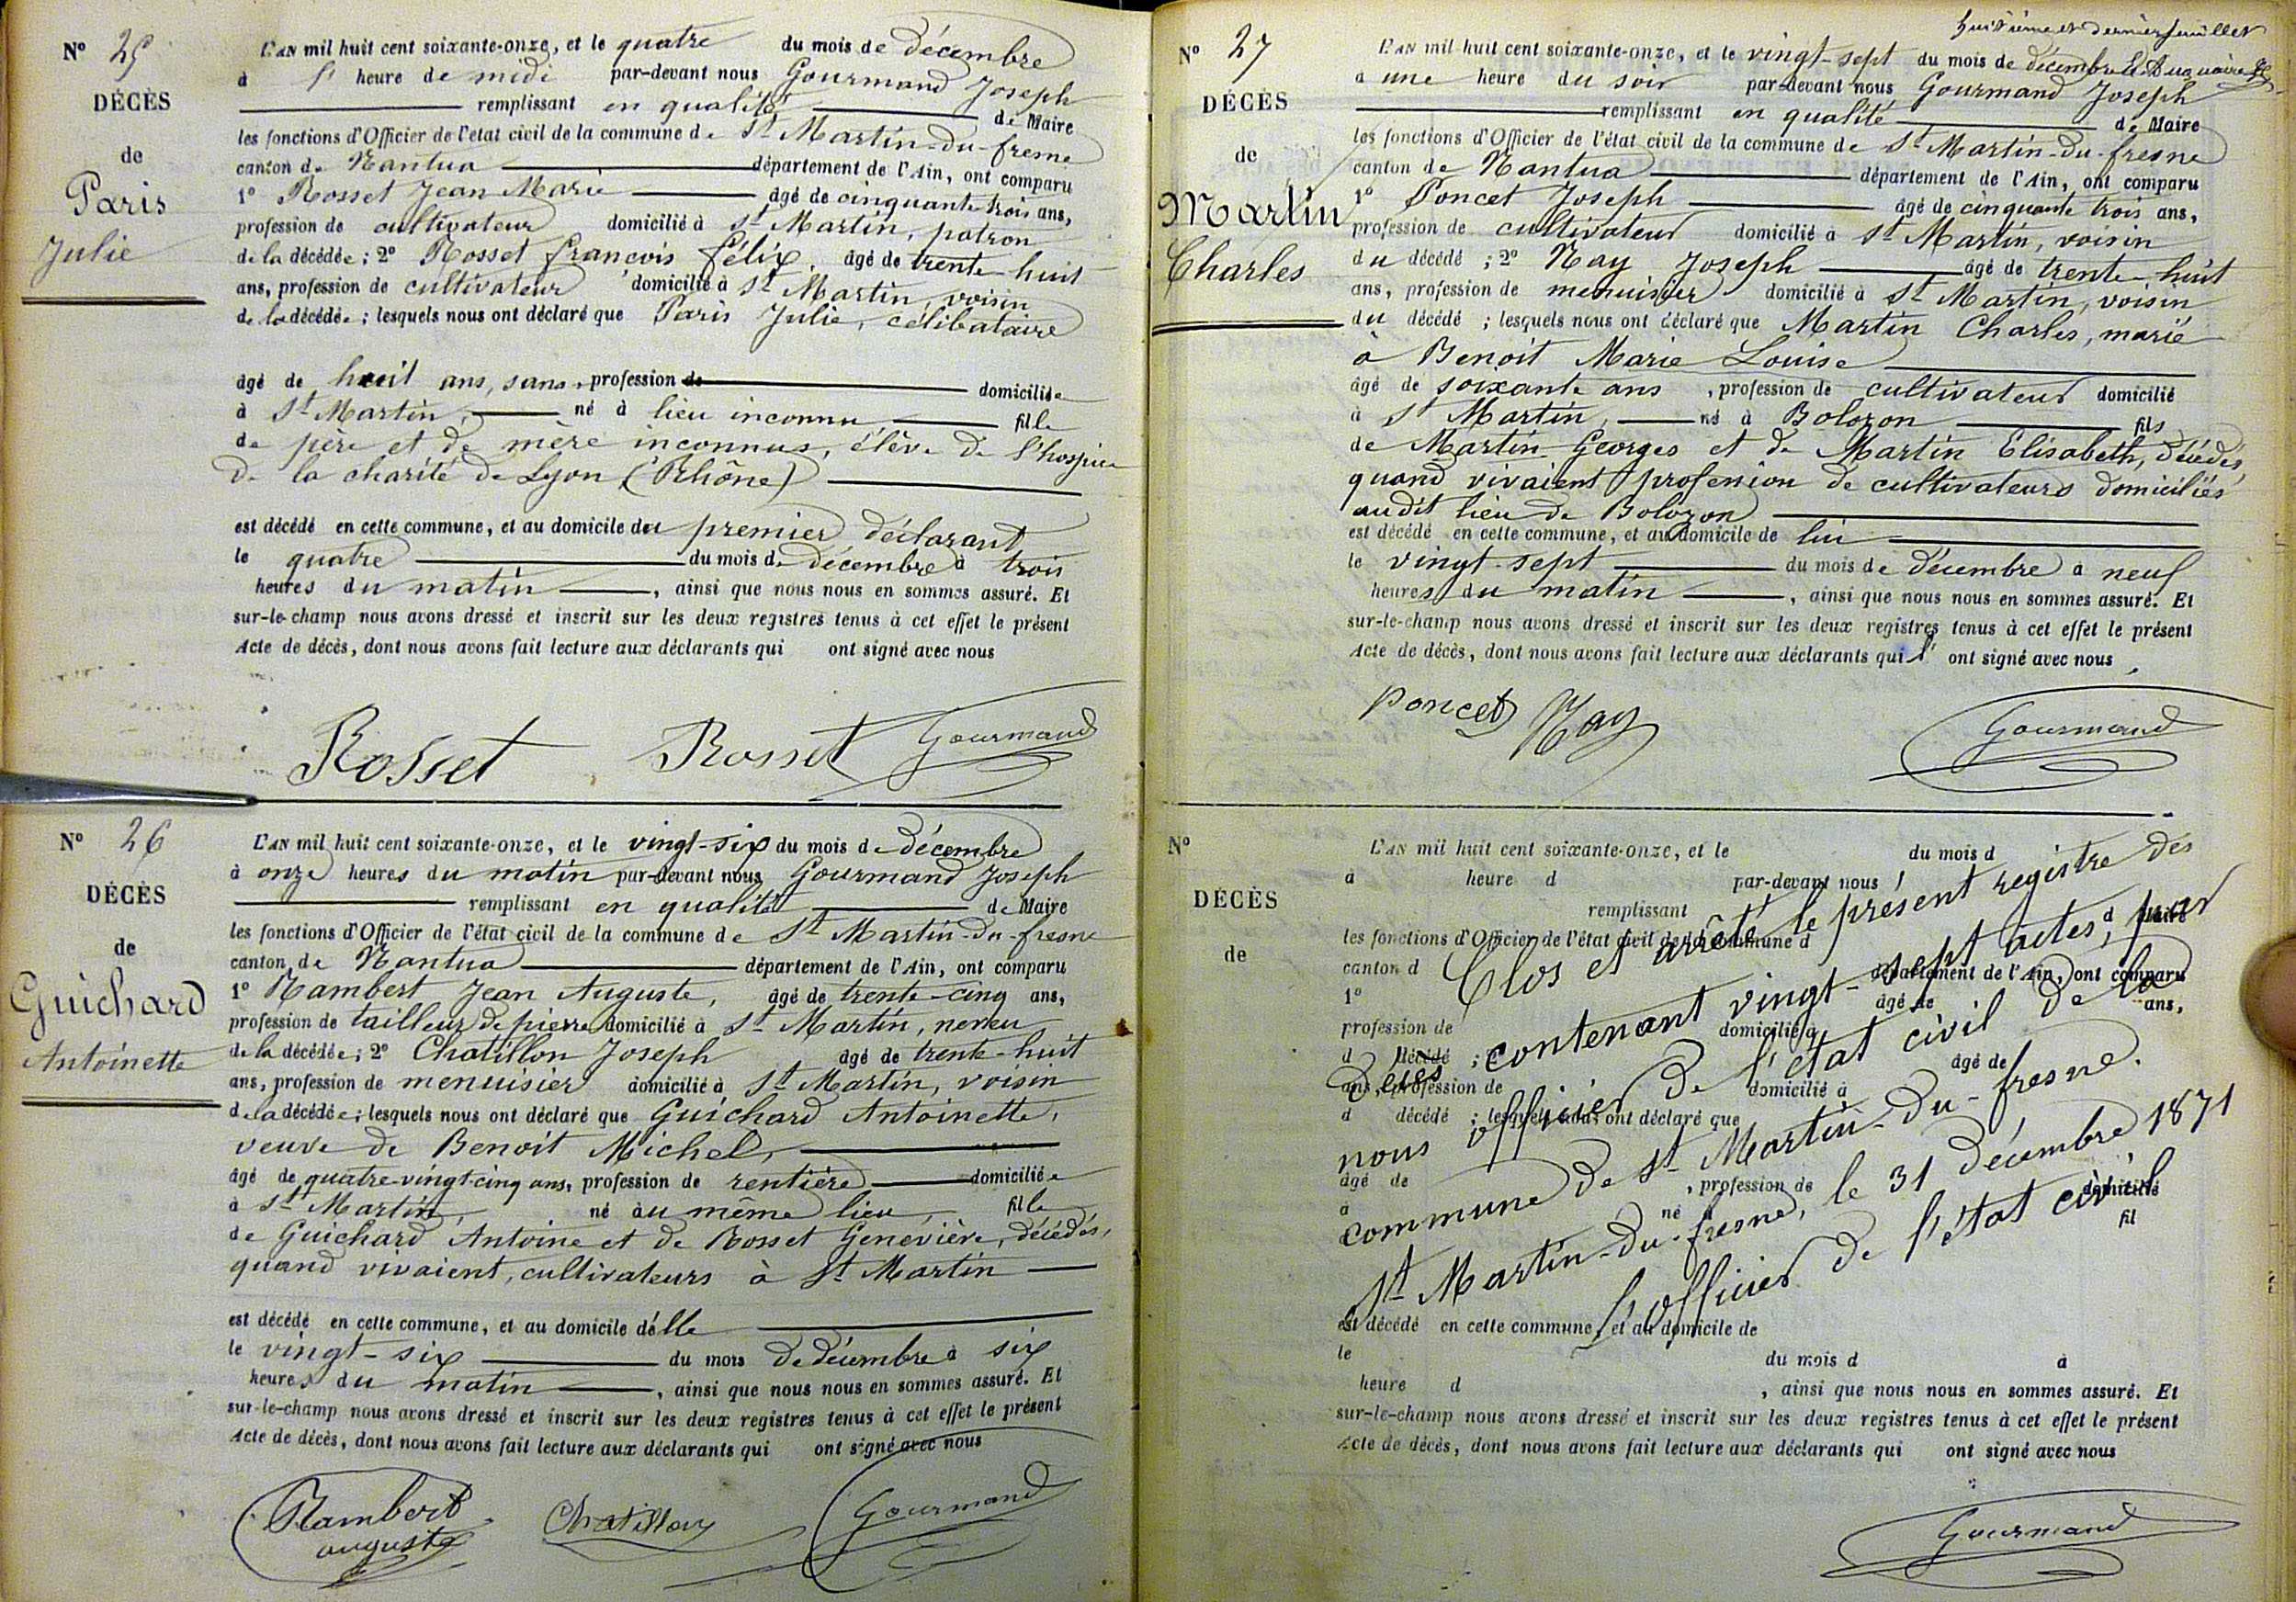 N° 25
DÉCÈS
de
Paris
Julie
L'AN mil huit cent soixante-onze, et le quatre du mois de décembre
à l' heure de midi par-devant nous Gourmand Joseph
remplissant en qualité de Maire
les fonctions d'Officier de l'état civil de la commune de St Martin-du-fresne
canton de Nantua département de l'Ain, ont comparu
1° Rosset Jean Marie âgé de cinquante-trois ans,
profession de cultivateur domicilié à St Martin, patron
de la décédée ; 2° Rosset francois félix, âgé de trente-huit
ans, profession de cultivateur domicilié à St Martin, voisin
de la décédée ; lesquels nous ont déclaré que Paris Julie, célibataire
âgé de huit ans, sans profession de domiciliée
à St Martin, né à lieu inconnu, fille
de père et de mère inconnus, élève de l'hospice
de la charité de Lyon (Rhône)
est décédé en cette commune, et au domicile du premier déclarant
le quatre du mois de décembre à trois
heures du matin, ainsi que nous nous en sommes assuré. Et
sur-le-champ nous avons dressé et inscrit sur les deux registres tenus à cet effet le présent
Acte de décès, dont nous avons fait lecture aux déclarants qui ont signé avec nous
Rosset Rosset Gourmand
N° 26
DÉCÈS
de
Guichard
Antoinette
L'AN mil huit cent soixante-onze, et le vingt-six du mois de décembre
à onze heures du matin par-devant nous Gourmand Joseph
remplissant en qualité de Maire
les fonctions d'Officier de l'état civil de la commune de St Martin-du-fresne
canton de Nantua département de l'Ain, ont comparu
1° Rambert Jean Auguste, âgé de trente-cinq ans,
profession de tailleur de pierre domicilié à St Martin, neveu
de la décédée ; 2° Chatillon Joseph âgé de trente-huit
ans, profession de menuisier domicilié à St Martin, voisin
de la décédée ; lesquels nous ont déclaré que Guichard Antoinette,
veuve de Benoit Michel,
âgé de quatre-vingt-cinq ans, profession de rentière domiciliée
à St Martin, né au même lieu, fille
de Guichard Antoine et de Rosset Geneviève, décédés,
quand vivaient, cultivateurs à St Martin
est décédé en cette commune, et au domicile d'elle
le vingt-six du mois de décembre à six
heures du matin, ainsi que nous nous en sommes assuré. Et
sur-le-champ nous avons dressé et inscrit sur les deux registres tenus à cet effet le présent
Acte de décès, dont nous avons fait lecture aux déclarants qui ont signé avec nous
Rambert
auguste
Chatillon Gourmand
huitième et dernier feuillet
N° 27
DÉCÈS
de
Martin
Charles
L'AN mil huit cent soixante-onze, et le vingt-sept du mois de décembre
à une heure du soir par-devant nous Gourmand Joseph
remplissant en qualité de Maire
les fonctions d'Officier de l'état civil de la commune de St Martin-du-fresne
canton de Nantua département de l'Ain, ont comparu
1° Poncet Joseph âgé de cinquante trois ans,
profession de cultivateur domicilié à St Martin, voisin
du décédé ; 2° Nay Joseph âgé de trente-huit
ans, profession de menuisier domicilié à St Martin, voisin
du décédé ; lesquels nous ont déclaré que Martin Charles, marié
à Benoit Marie Louise
âgé de soixante ans, profession de cultivateur domicilié
à St Martin, né à Bolozon fils
de Martin Georges et de Martin Elisabeth, décédés
quand vivaient profession de cultivateurs domiciliés
audit lieu de Bolozon
est décédé en cette commune, et au domicile de lui
le vingt-sept du mois de décembre à neuf
heures du matin, ainsi que nous nous en sommes assuré. Et
sur-le-champ nous avons dressé et inscrit sur les deux registres tenus à cet effet le présent
Acte de décès, dont nous avons fait lecture aux déclarants qui ont signé avec nous
Poncet Nay Gourmand
N°
DÉCÈS
de
L'AN mil huit cent soixante-onze, et le du mois d
à heure d par-devant nous
remplissant d Maire
les fonctions d'Officier de l'état civil de la commune d
canton d département de l'Ain, ont comparu
1° âgé de ans,
profession de domicilié à
d décédé ; 2° âgé de
ans, profession de domicilié à
d décédé ; lesquels nous ont déclaré que
âgé de , profession de domicilié
à né à fil
Clos et arrêté le présent registre des
décès contenant vingt-sept actes, par
nous officier de l'état civil de la
commune de St Martin-du-fresne.
St Martin-du-fresne, le 31 décembre 1871
L'officier de l'état civil
est décédé en cette commune, et au domicile de
le du mois d à
heure d , ainsi que nous nous en sommes assuré. Et
sur-le-champ nous avons dressé et inscrit sur les deux registres tenus à cet effet le présent
Acte de décès, dont nous avons fait lecture aux déclarants qui ont signé avec nous
Gourmand